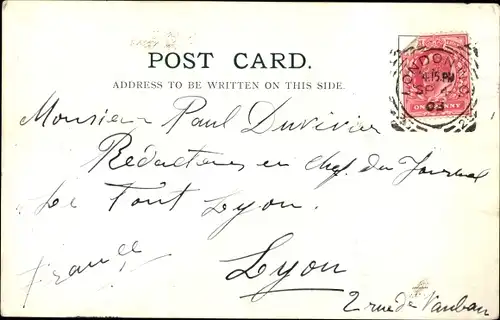 POST CARD.
ADDRESS TO BE WRITTEN ON THIS SIDE.
LONDON
4.15 PM
SP
03
ONE PENNY
Monsieur Paul Duvivier
Rédacteur en Chef du Journal
Le Tout Lyon.
Lyon
France
2 rue de Vauban